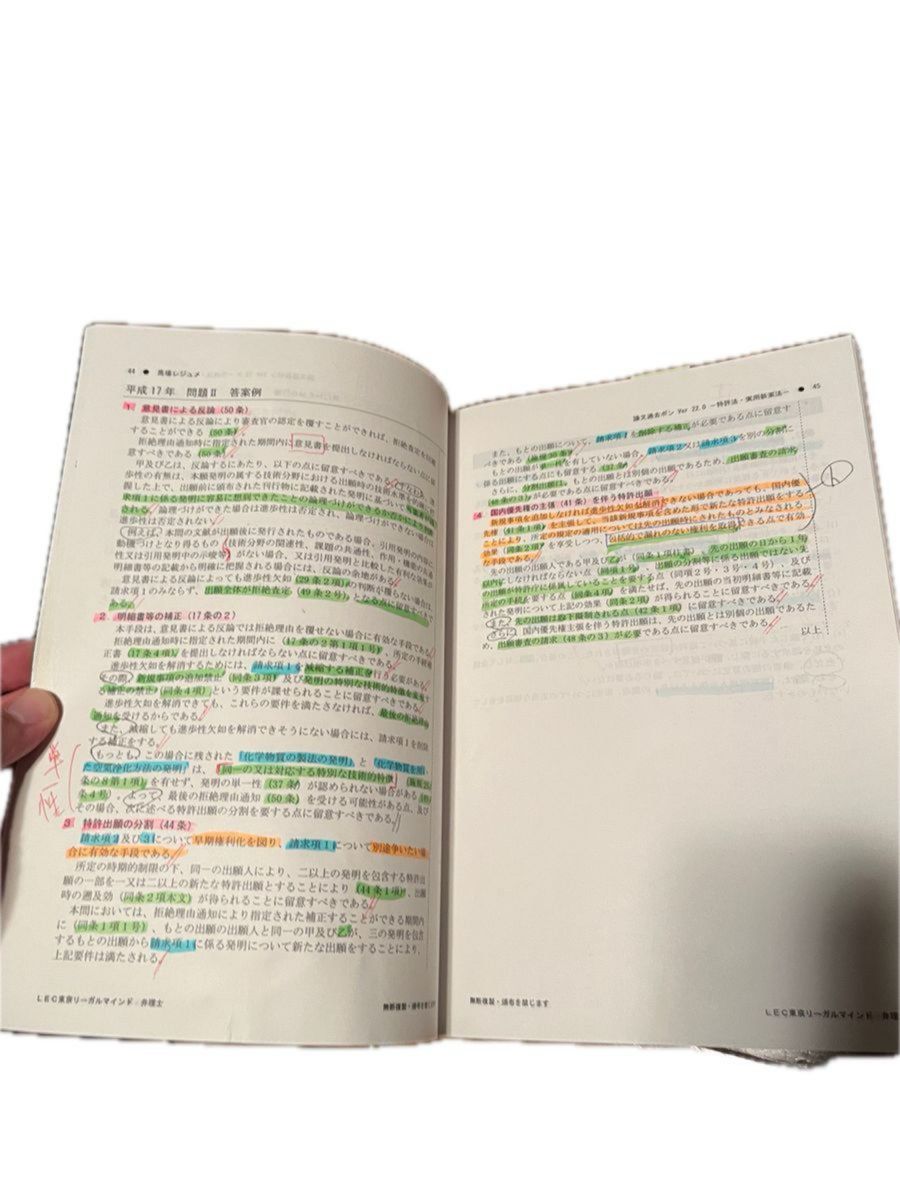 44 ● 馬場レジュメ
平成17年 問題Ⅱ 答案例
1 意見書による反論（50条）
意見書による反論により審査官の認定を覆すことができれば、拒絶査定を回避
することができる（50条）。
拒絶理由通知時に指定された期間内に意見書を提出しなければならない点に留
意すべきである（50条）。
甲及び乙は、反論するにあたり、以下の点に留意すべきである。すなわち、進
歩性の有無は、本願発明の属する技術分野における出願時の技術水準を的確に把
握した上で、出願前に頒布された刊行物に記載された発明に基づいて当業者が請
求項1に係る発明に容易に想到できたことの論理づけができるか否かにより判断
される。論理づけができた場合は進歩性は否定され、論理づけができない場合は
進歩性は否定されない。
例えば、本問の文献が出願後に発行されたものである場合、引用発明の内容に
動機づけとなり得るもの（技術分野の関連性、課題の共通性、作用・機能の共通
性又は引用発明中の示唆等）がない場合、又は引用発明と比較した有利な効果が
明細書等の記載から明確に把握される場合には、反論の余地がある。
意見書による反論によっても進歩性欠如（29条2項）の判断が覆らない場合は、
請求項1のみならず、出願全体が拒絶査定（49条2号）となる点に留意すべきで
ある。
2 明細書等の補正（17条の2）
本手段は、意見書による反論では拒絶理由を覆せない場合に有効な手段である。
拒絶理由通知時に指定された期間内に（17条の2第1項1号）、所定の手続補
正書（17条4項）を提出しなければならない点に留意すべきである。
進歩性欠如を解消するためには、請求項1を減縮する補正を行う必要がある。
その際、新規事項の追加禁止（同条3項）及び発明の特別な技術的特徴を変更す
る補正の禁止（同条4項）という要件が課せられることに留意すべきである。
進歩性欠如を解消できても、これらの要件を満たさなければ、最後の拒絶理由
通知を受けるからである。
また、減縮しても進歩性欠如を解消できそうにない場合には、請求項1を削除
する補正をする。
もっとも、この場合に残された「化学物質の製法の発明」と「化学物質を用い
た空気浄化方法の発明」は、「同一の又は対応する特別な技術的特徴」（施規25
条の8第1項）を有せず、発明の単一性（37条）が認められない場合がある（49
条4号）。よって、最後の拒絶理由通知（50条）を受ける可能性がある点、及び
その場合、次に述べる特許出願の分割を要する点に留意すべきである。
単一性
3 特許出願の分割（44条）
請求項2及び3について早期権利化を図り、請求項1について別途争いたい場
合に有効な手段である。
所定の時期的制限の下、同一の出願人により、二以上の発明を包含する特許出
願の一部を一又は二以上の新たな特許出願とすることにより（44条1項）、出願
時の遡及効（同条2項本文）が得られることに留意すべきである。
本問においては、拒絶理由通知により指定された補正することができる期間内
に（同条1項1号）、もとの出願の出願人と同一の甲及び乙が、三の発明を包含
するもとの出願から請求項1に係る発明について新たな出願をすることにより、
上記要件は満たされる。
LEC東京リーガルマインド・弁理士
無断複製・頒布を禁じます
論文過去ポン Ver 22.0 －特許法・実用新案法－ ● 45
また、もとの出願について、請求項1を削除する補正が必要である点に留意す
べきである（施規30条）。
もとの出願が単一性を有していない場合、請求項2又は請求項3を別の分割に
係る出願にする点にも留意すべきである（37条）。
さらに、分割出願は、もとの出願とは別個の出願であるため、出願審査の請求
（48条の3）が必要である点に留意すべきである。
4 国内優先権の主張（41条）を伴う特許出願
新規事項を追加しなければ進歩性欠如を解消できない場合であっても、国内優
先権（41条1項）を主張して、当該新規事項を含めた形で新たな特許出願をする
ことにより、所定の規定の適用については先の出願時にされたものとみなされる
効果（同条2項）を享受しつつ、包括的で漏れのない権利を取得できる点で有効
な手段である。
先の出願人である甲及び乙が（同条1項柱書）、先の出願の日から1年
以内にしなければならない点（同項1号）、出願の分割等に係る出願ではない先
の出願が特許庁に係属していることを要する点（同項2号・3号・4号）、及び
所定の手続を要する点（同条4項）を満たせば、先の出願の当初明細書等に記載
された発明について上記の効果（同条2項）が得られることに留意すべきである。
また、先の出願は取下擬制される点（42条1項）に留意すべきである。
さらに、国内優先権主張を伴う特許出願は、先の出願とは別個の出願であるた
め、出願審査の請求（48条の3）が必要である点に留意すべきである。
以上
無断複製・頒布を禁じます
LEC東京リーガルマインド・弁理